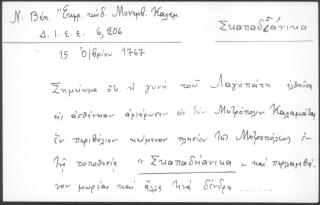 Ν. Βέη. "Έγγρ. κώδ. Μονεμβ. Καλαμ.
Δ. Ι. Ε. Ε. 6, 206
Σκαπαδζάνικα
15 Ὀ/βρίου 1767
Σημείωμα ὅτι ἡ γυνή τοῦ Λαγοπάτη ἐλθοῦσα
εἰς ἀσθένειαν ἀφιέρωσεν εἰς τήν Μητρόπολιν Καλαμάτας
ἕν περιβόλιον κείμενον πλησίον τῆς Μητροπόλεως ἐν
τῇ τοποθεσίᾳ "Σκαπαδζάνικα" καί περιλαμβά-
νον μωρέας καί ἄλλα τινά δένδρα.......